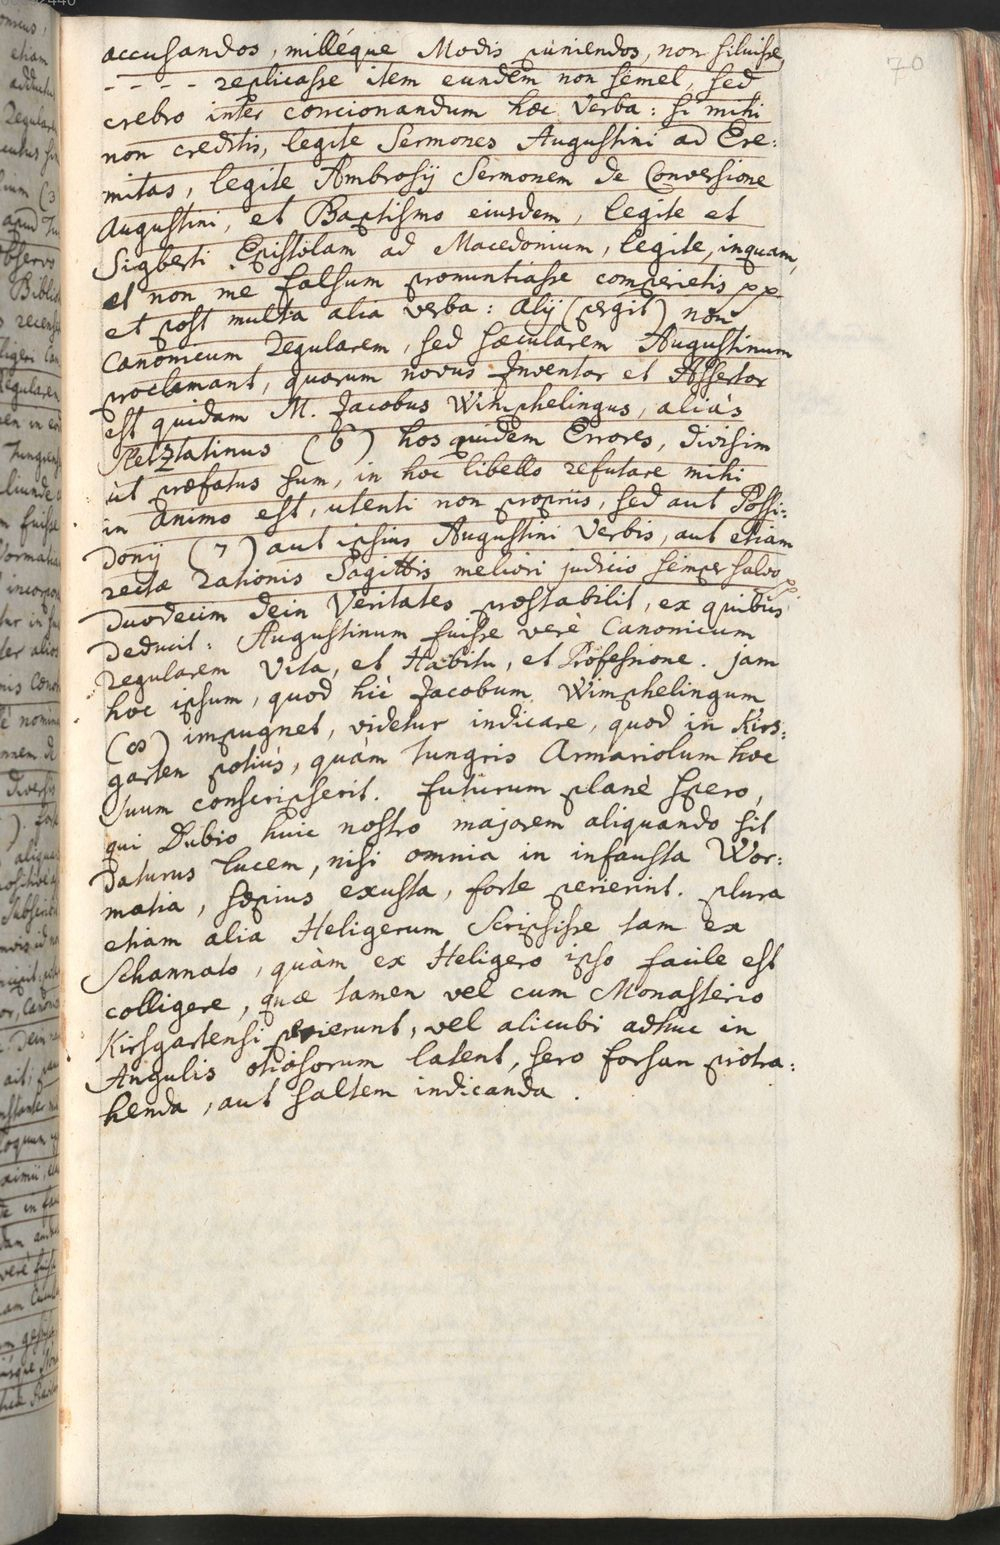 70
accusandos, milléque Modis puniendos, non siluisse,
- - - - replicasse item eundem non semel, sed
crebro inter concionandum hæc verba: si mihi
non creditis, legite Sermones Augustini ad Ere:
mitas, legite Ambrosij Sermonem de Conversione
Augustini, et Baptismo eiusdem, legite et
Sigberti Epistolam ad Macedonium, legite, inquam,
et non me falsum pronuntiasse comperietis pp.
et post multa alia verba: alij (pergit) non
Canonicum Regularem, sed sæcularem Augustinum
proclamant, quorum novus Inventor et Assertor
est quidam M. Jacobus Wimphelingus, aliàs
Sletztatinus (6) hos quidem Errores, divisim
ùt præfatus sum, in hoc libello refutare mihi
in animo est, utenti non propriis, sed aut Possi:
donij (7) aut ipsius Augustini Verbis, aut etiam
rectæ rationis Sagittis meliori judicio semper salvo pp.
duodecim dein Veritates præstabilit, ex quibus
deducit: Augustinum fuisse verè Canonicum
regularem Vita, et Habitu, et Professione. jam
hoc ipsum, quod hic Jacobum Wimphelingum
(8) impugnet, videtur indicare, quod in Kirs:
garten potiùs, quàm Tungris Armariolum hoc
suum conscripserit. futurum planè spero,
qui Dubio huic nostro majorem aliquando sit
daturus lucem, nisi omnia in infausta Wor:
matia, sæpius exusta, forte perierint. plura
etiam alia Heligerum Scripsisse tam ex
Schannato, quàm ex Heligero ipso facile est
colligere, quæ tamen vel cum Monasterio
Kirsgartensi perierunt, vel alicubi adhuc in
Angulis otiosorum latent, sero forsan protra:
henda, aut saltem indicanda.